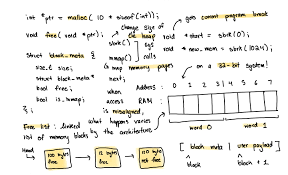 int *ptr = malloc( 10 * sizeof(int));
void free( void *ptr);
struct block_meta {
size_t size;
struct block_meta *next;
bool free;
bool is_mmap;
};
change size of the heap
sbrk() } sys
mmap() } calls
map memory pages
gets current program break
void *start = sbrk(0);
void *new_mem = sbrk(1024);
on a 32-bit system!
what happens when access is misaligned, varies by the architecture
Address: 0 1 2 3 4 5 6 7
RAM:
word 0 word 1
Free list: linked list of memory blocks
Head
100 bytes free
12 bytes free
110 bytes not free
[ block meta | user payload ]
block block + 1